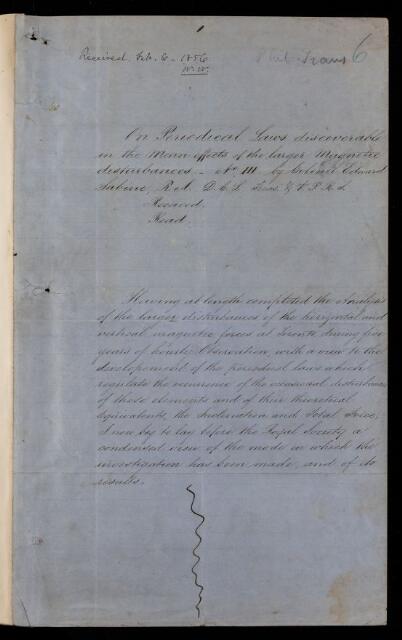 Received Feb. 6. 1856
W.W.
Phil. Trans 6
On Periodical Laws discoverable
in the Mean effects of the larger Magnetic
disturbances. - No. III by Colonel Edward
Sabine, R.A. D.C.L. Treas. & V.P.R.S.
Received.
Read.
Having at length completed the Analysis
of the larger disturbances of the horizontal and
vertical magnetic forces at Toronto during five
years of hourly Observation, with a view to the
developement of the periodical laws which
regulate the occurrence of the occasional disturbances
of these elements and of their theoretical
equivalents, the Inclination and Total Force,
I now beg to lay before the Royal Society a
condensed view of the mode in which the
investigation has been made, and of its
results.